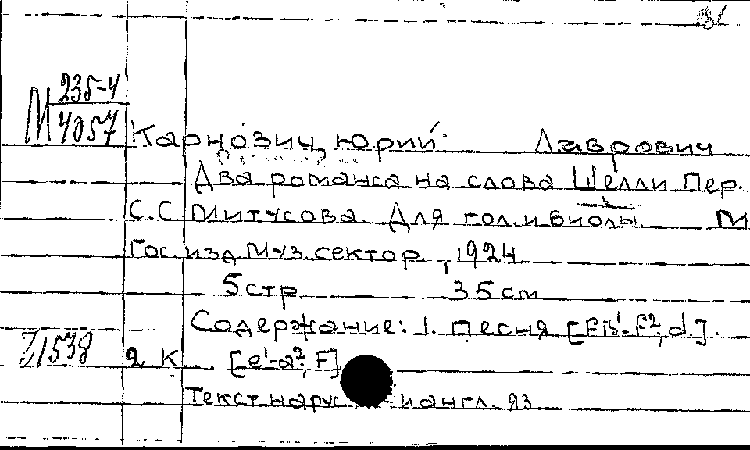 М 235-4
4057
Карнович, Юрий Лаврович
Два романса на слова Шелли Пер.
С.С Митусова. Для гол. и виолы М
Гос. изд Муз. сектор, 1924
5 стр 35 см
Содержание: 1. Песня [Fis¹-f², d].
31538 2 К [e¹-a², F]
Текст на рус и англ. яз